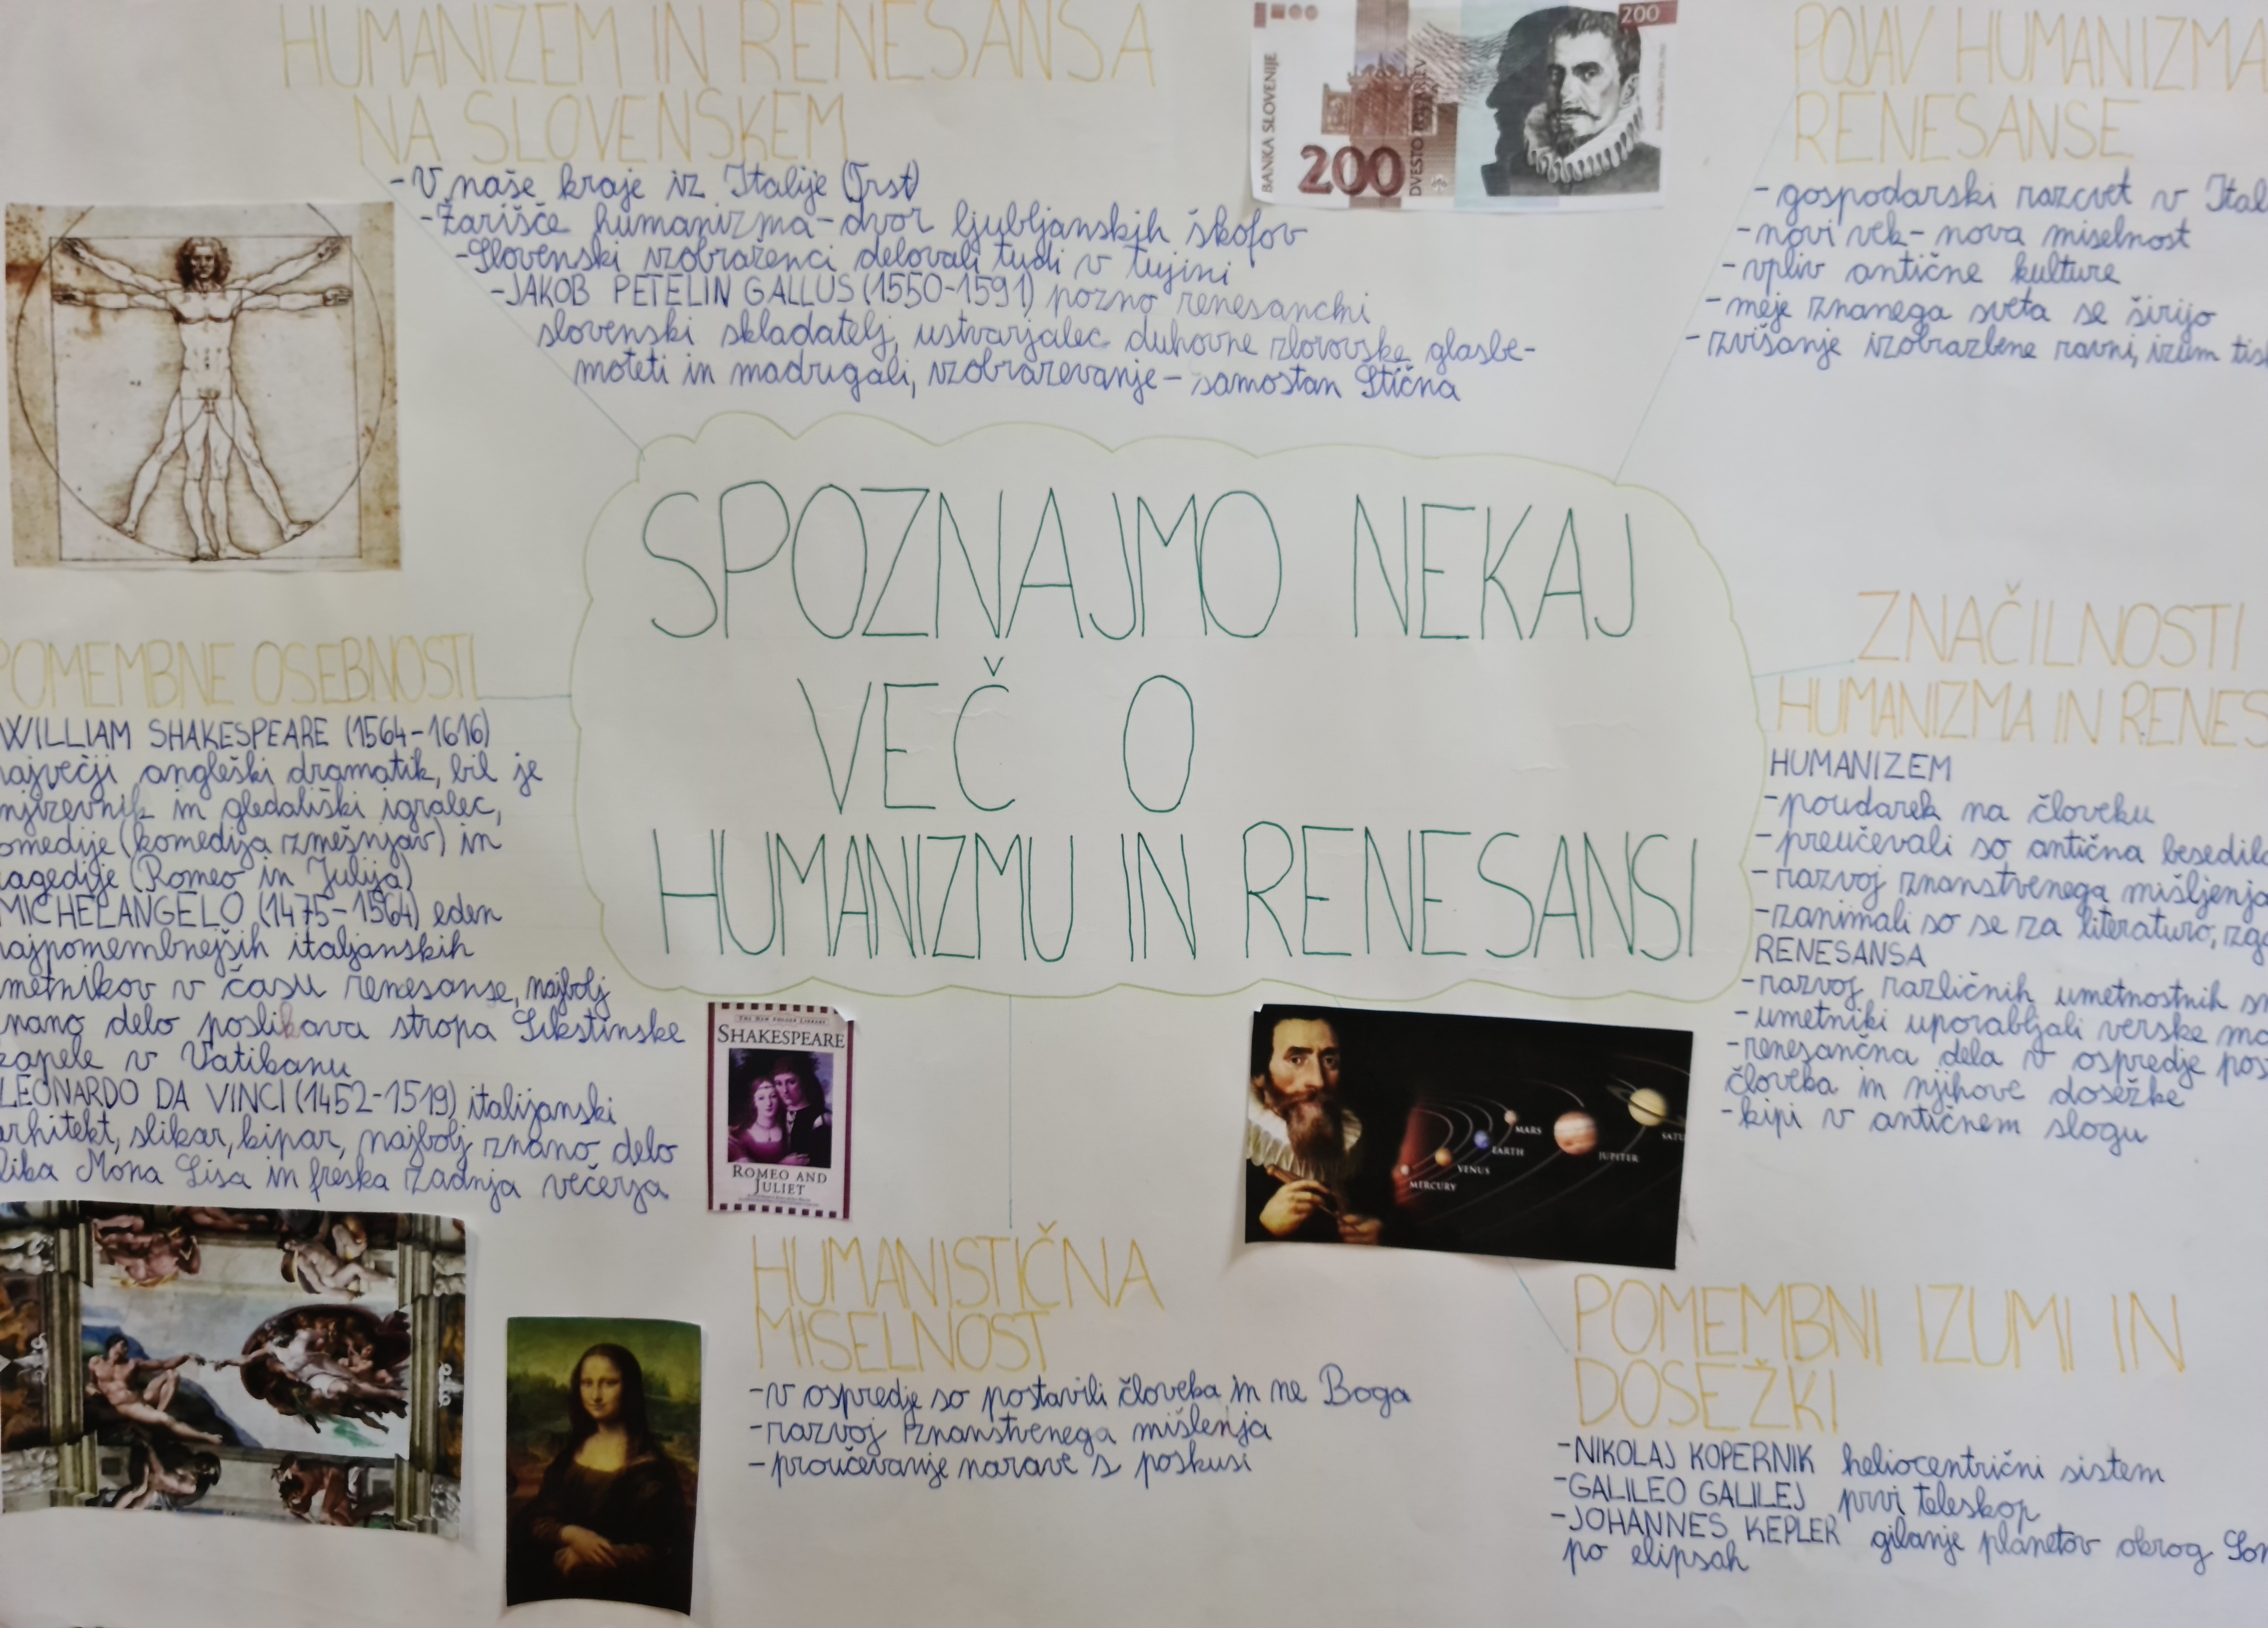 HUMANIZEM IN RENESANSA
NA SLOVENSKEM
-V naše kraje iz Italije (Trst)
-Žarišče humanizma-dvor ljubljanskih škofov
-Slovenski izobraženci delovali tudi v tujini
-JAKOB PETELIN GALLUS (1550-1591) pozno renesančni
slovenski skladatelj, ustvarjalec duhovne zborovske glasbe-
moteti in madrigali, izobraževanje- samostan Stična
BANKA SLOVENIJE
200
DVESTO TOLARJEV
200
POJAV HUMANIZMA
RENESANSE
-gospodarski razcvet v Ital
-novi vek- nova miselnost
-vpliv antične kulture
-meje znanega sveta se širijo
-zvišanje izobrazbene ravni, izum tis
SPOZNAJMO NEKAJ
VEČ O
HUMANIZMU IN RENESANSI
POMEMBNE OSEBNOSTI
WILLIAM SHAKESPEARE (1564-1616)
največji angleški dramatik, bil je
njiževnik in gledališki igralec,
omedije (komedija zmešnjav) in
ragedije (Romeo in Julija)
MICHELANGELO (1475-1564) eden
najpomembnejših italjanskih
metnikov v času renesanse, najbolj
nano delo poslikava stropa Sikstinske
kapele v Vatikanu
LEONARDO DA VINCI (1452-1519) italijanski
arhitekt, slikar, kipar, najbolj znano delo
lika Mona Lisa in freska Zadnja večerja
ZNAČILNOSTI
HUMANIZMA IN RENES
HUMANIZEM
-poudarek na človeku
-preučevali so antična besedila
-razvoj znanstvenega mišljenja
-zanimali so se za literaturo, zgo
RENESANSA
-razvoj različnih umetnostnih sm
-umetniki uporabljali verske mo
-renesančna dela v ospredje pos
človeka in njihove dosežke
-kipi v antičnem slogu
THE NEW FOLGER LIBRARY
SHAKESPEARE
ROMEO AND
JULIET
MERCURY
VENUS
EARTH
MARS
JUPITER
SATU
HUMANISTIČNA
MISELNOST
-v ospredje so postavili človeka in ne Boga
-razvoj znanstvenega mišlenja
-proučevanje narave s poskusi
POMEMBNI IZUMI IN
DOSEŽKI
-NIKOLAJ KOPERNIK heliocentrični sistem
-GALILEO GALILEJ prvi teleskop
-JOHANNES KEPLER gibanje planetov okrog Son
po elipsah